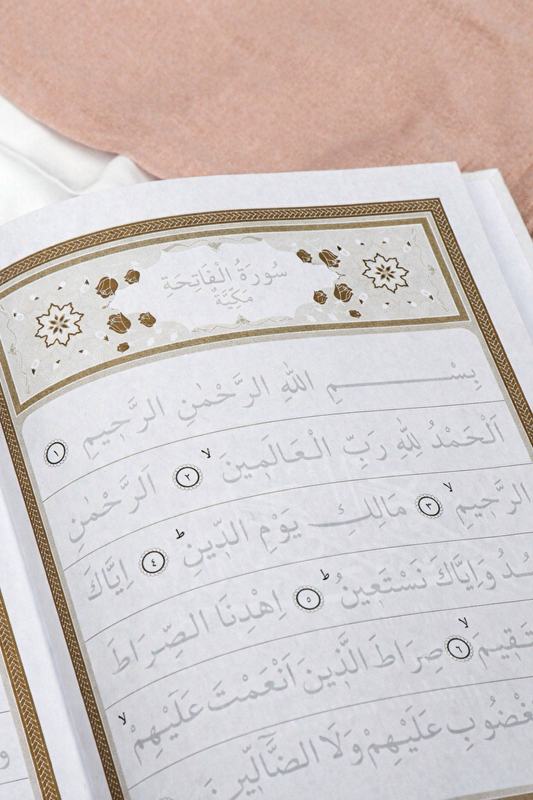 سُورَةُ الْفَاتِحَةِ
مَكِّيَّةٌ
بِسْـــــــمِ اللّٰهِ الرَّحْمٰنِ الرَّحِيمِ ١
اَلْحَمْدُ لِلّٰهِ رَبِّ الْعَالَمِينَ ۙ ٢ اَلرَّحْمٰنِ
الرَّحِيمِ ۙ ٣ مَالِكِ يَوْمِ الدِّينِ ۜ ٤ اِيَّاكَ
ـدُ وَاِيَّاكَ نَسْتَعِينُ ۜ ٥ اِهْدِنَا الصِّرَاطَ
ـتَقِيمَ ۙ ٦ صِرَاطَ الَّذِينَ اَنْعَمْتَ عَلَيْهِمْ ۙ
ـغْضُوبِ عَلَيْهِمْ وَلَا الضَّٓالِّينَ